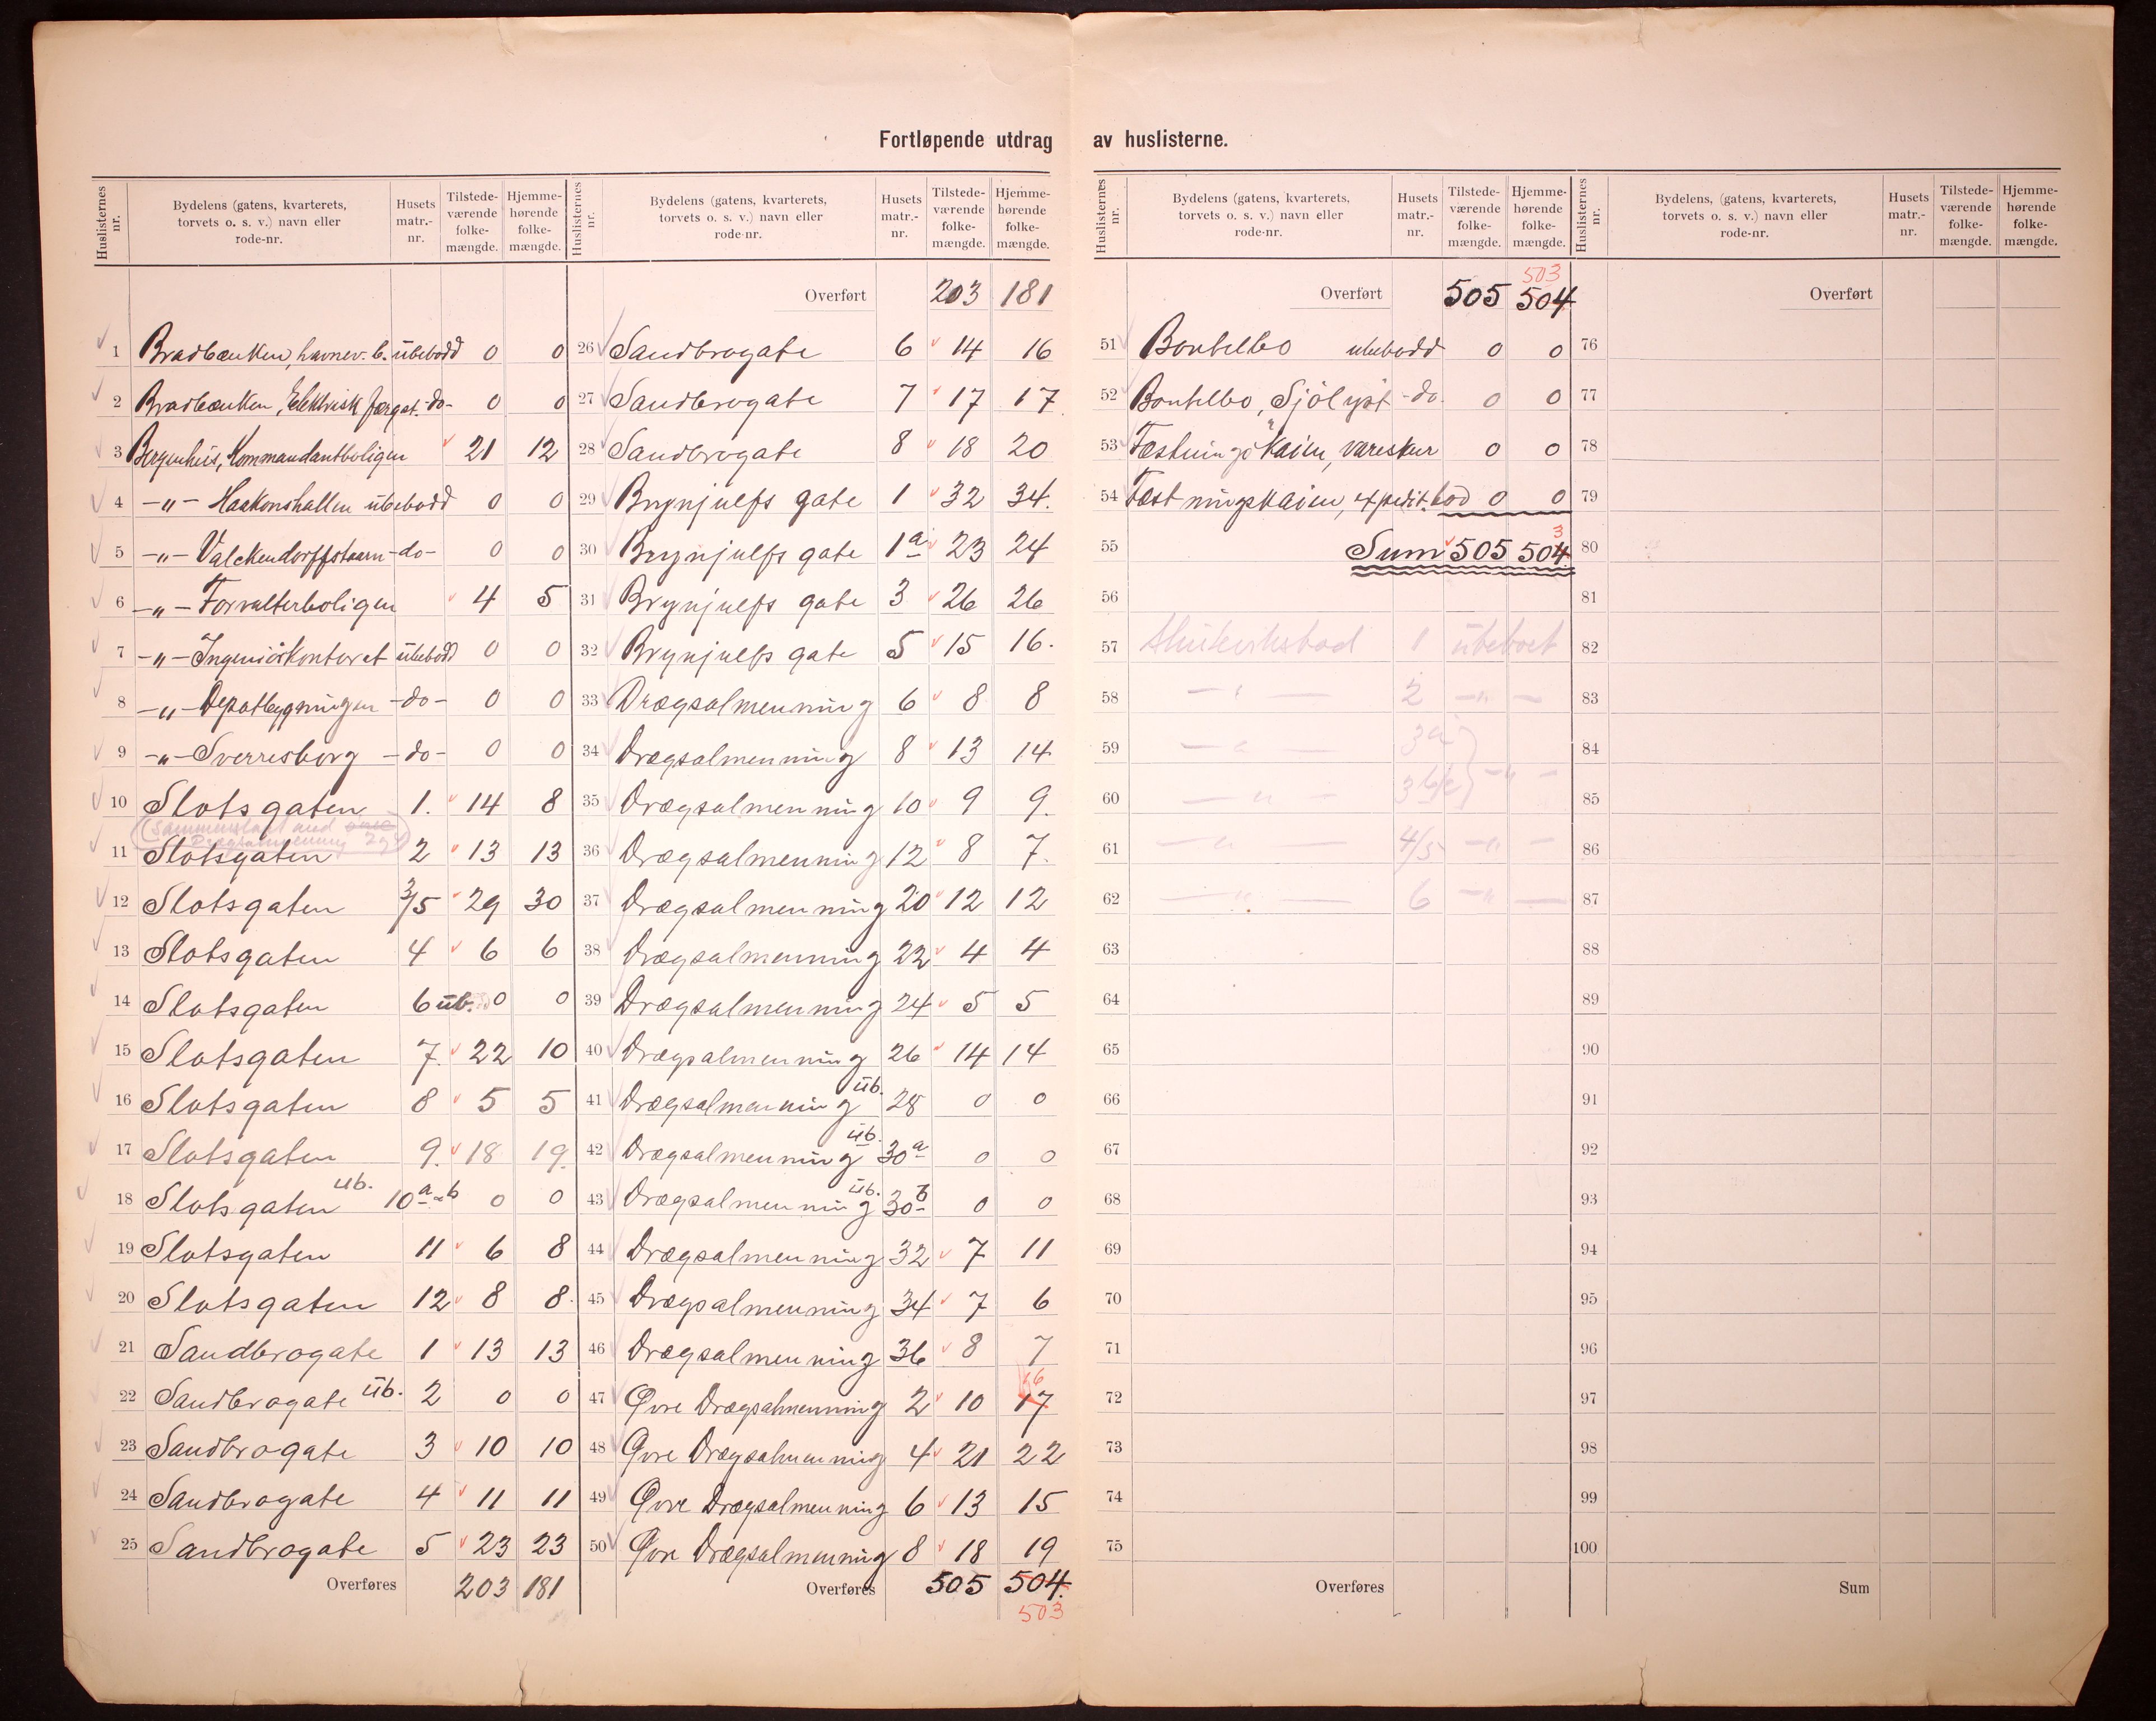 Fortløpende utdrag av huslisterne.
Huslisternes nr. Bydelens (gatens, kvarterets, torvets o. s. v.) navn eller rode-nr. Husets matr.-nr. Tilstede-værende folke-mængde. Hjemme-hørende folke-mængde.
1 Bradbænken, havnev. b. übebodd 0 0
2 Bradbænken, Elektrisk færget. -do- 0 0
3 Bergenhüs, Kommandantboligen 21 12
4 -„- Haakonshallen übebodd 0 0
5 -„- Valckendorffstaarn -do- 0 0
6 -„- Forvalterboligen 4 5
7 -„- Ingeniörkontoret übebodd 0 0
8 -„- Depotbygningen -do- 0 0
9 -„- Sverresborg -do- 0 0
10 Slotsgaten 1. 14 8
(Sammenslaat med
11 Slotsgaten 2 13 13
12 Slotsgaten 3/5 29 30
13 Slotsgaten 4 6 6
14 Slotsgaten 6 üb. 0 0
15 Slotsgaten 7. 22 10
16 Slotsgaten 8 5 5
17 Slotsgaten 9. 18 19.
18 Slotsgaten üb. 10 a-b 0 0
19 Slotsgaten 11 6 8
20 Slotsgaten 12 8 8
21 Sandbrogate 1 13 13
22 Sandbrogate üb. 2 0 0
23 Sandbrogate 3 10 10
24 Sandbrogate 4 11 11
25 Sandbrogate 5 23 23
Overføres 203 181
Huslisternes nr. Bydelens (gatens, kvarterets, torvets o. s. v.) navn eller rode-nr. Husets matr.-nr. Tilstede-værende folke-mængde. Hjemme-hørende folke-mængde.
Overført 203 181
26 Sandbrogate 6 14 16
27 Sandbrogate 7 17 17
28 Sandbrogate 8 18 20
29 Brynjulfs gate 1 32 34.
30 Brynjulfs gate 1a 23 24
31 Brynjulfs gate 3 26 26
32 Brynjulfs gate 5 15 16.
33 Drægsalmenning 6 8 8
34 Drægsalmenning 8 13 14
35 Drægsalmenning 10 9 9.
36 Drægsalmenning 12 8 7.
37 Drægsalmenning 20 12 12
38 Drægsalmenning 22 4 4
39 Drægsalmenning 24 5 5
40 Drægsalmenning 26 14 14
41 Drægsalmenning üb. 28 0 0
42 Drægsalmenning üb. 30a 0 0
43 Drægsalmenning üb. 30b 0 0
44 Drægsalmenning 32 7 11
45 Drægsalmenning 34 7 6
46 Drægsalmenning 36 8 7
47 Øvre Drægsalmenning 2 10 17 16
48 Øvre Drægsalmenning 4 21 22
49 Øvre Drægsalmenning 6 13 15
50 Øvre Drægsalmenning 8 18 19
Overføres 505 504.
503
Huslisternes nr. Bydelens (gatens, kvarterets, torvets o. s. v.) navn eller rode-nr. Husets matr.-nr. Tilstede-værende folke-mængde. Hjemme-hørende folke-mængde.
503
Overført 505 504
51 Bontelbo übebodd 0 0
52 Bontelbo, Sjölyst -do. 0 0
53 Fæstningskaien, vareskur 0 0
54 Fæstningskaien, expedit.bod 0 0
55 Sum 505 504 3
56
57 1 übeboet
58 -„- 2 -„-
59 -„- 3a
60 -„- 3b/c -„-
61 -„- 4/5 -„-
62 -„- 6 -„-
63
64
65
66
67
68
69
70
71
72
73
74
75
Overføres
Huslisternes nr. Bydelens (gatens, kvarterets, torvets o. s. v.) navn eller rode-nr. Husets matr.-nr. Tilstede-værende folke-mængde. Hjemme-hørende folke-mængde.
Overført
76
77
78
79
80
81
82
83
84
85
86
87
88
89
90
91
92
93
94
95
96
97
98
99
100
Sum